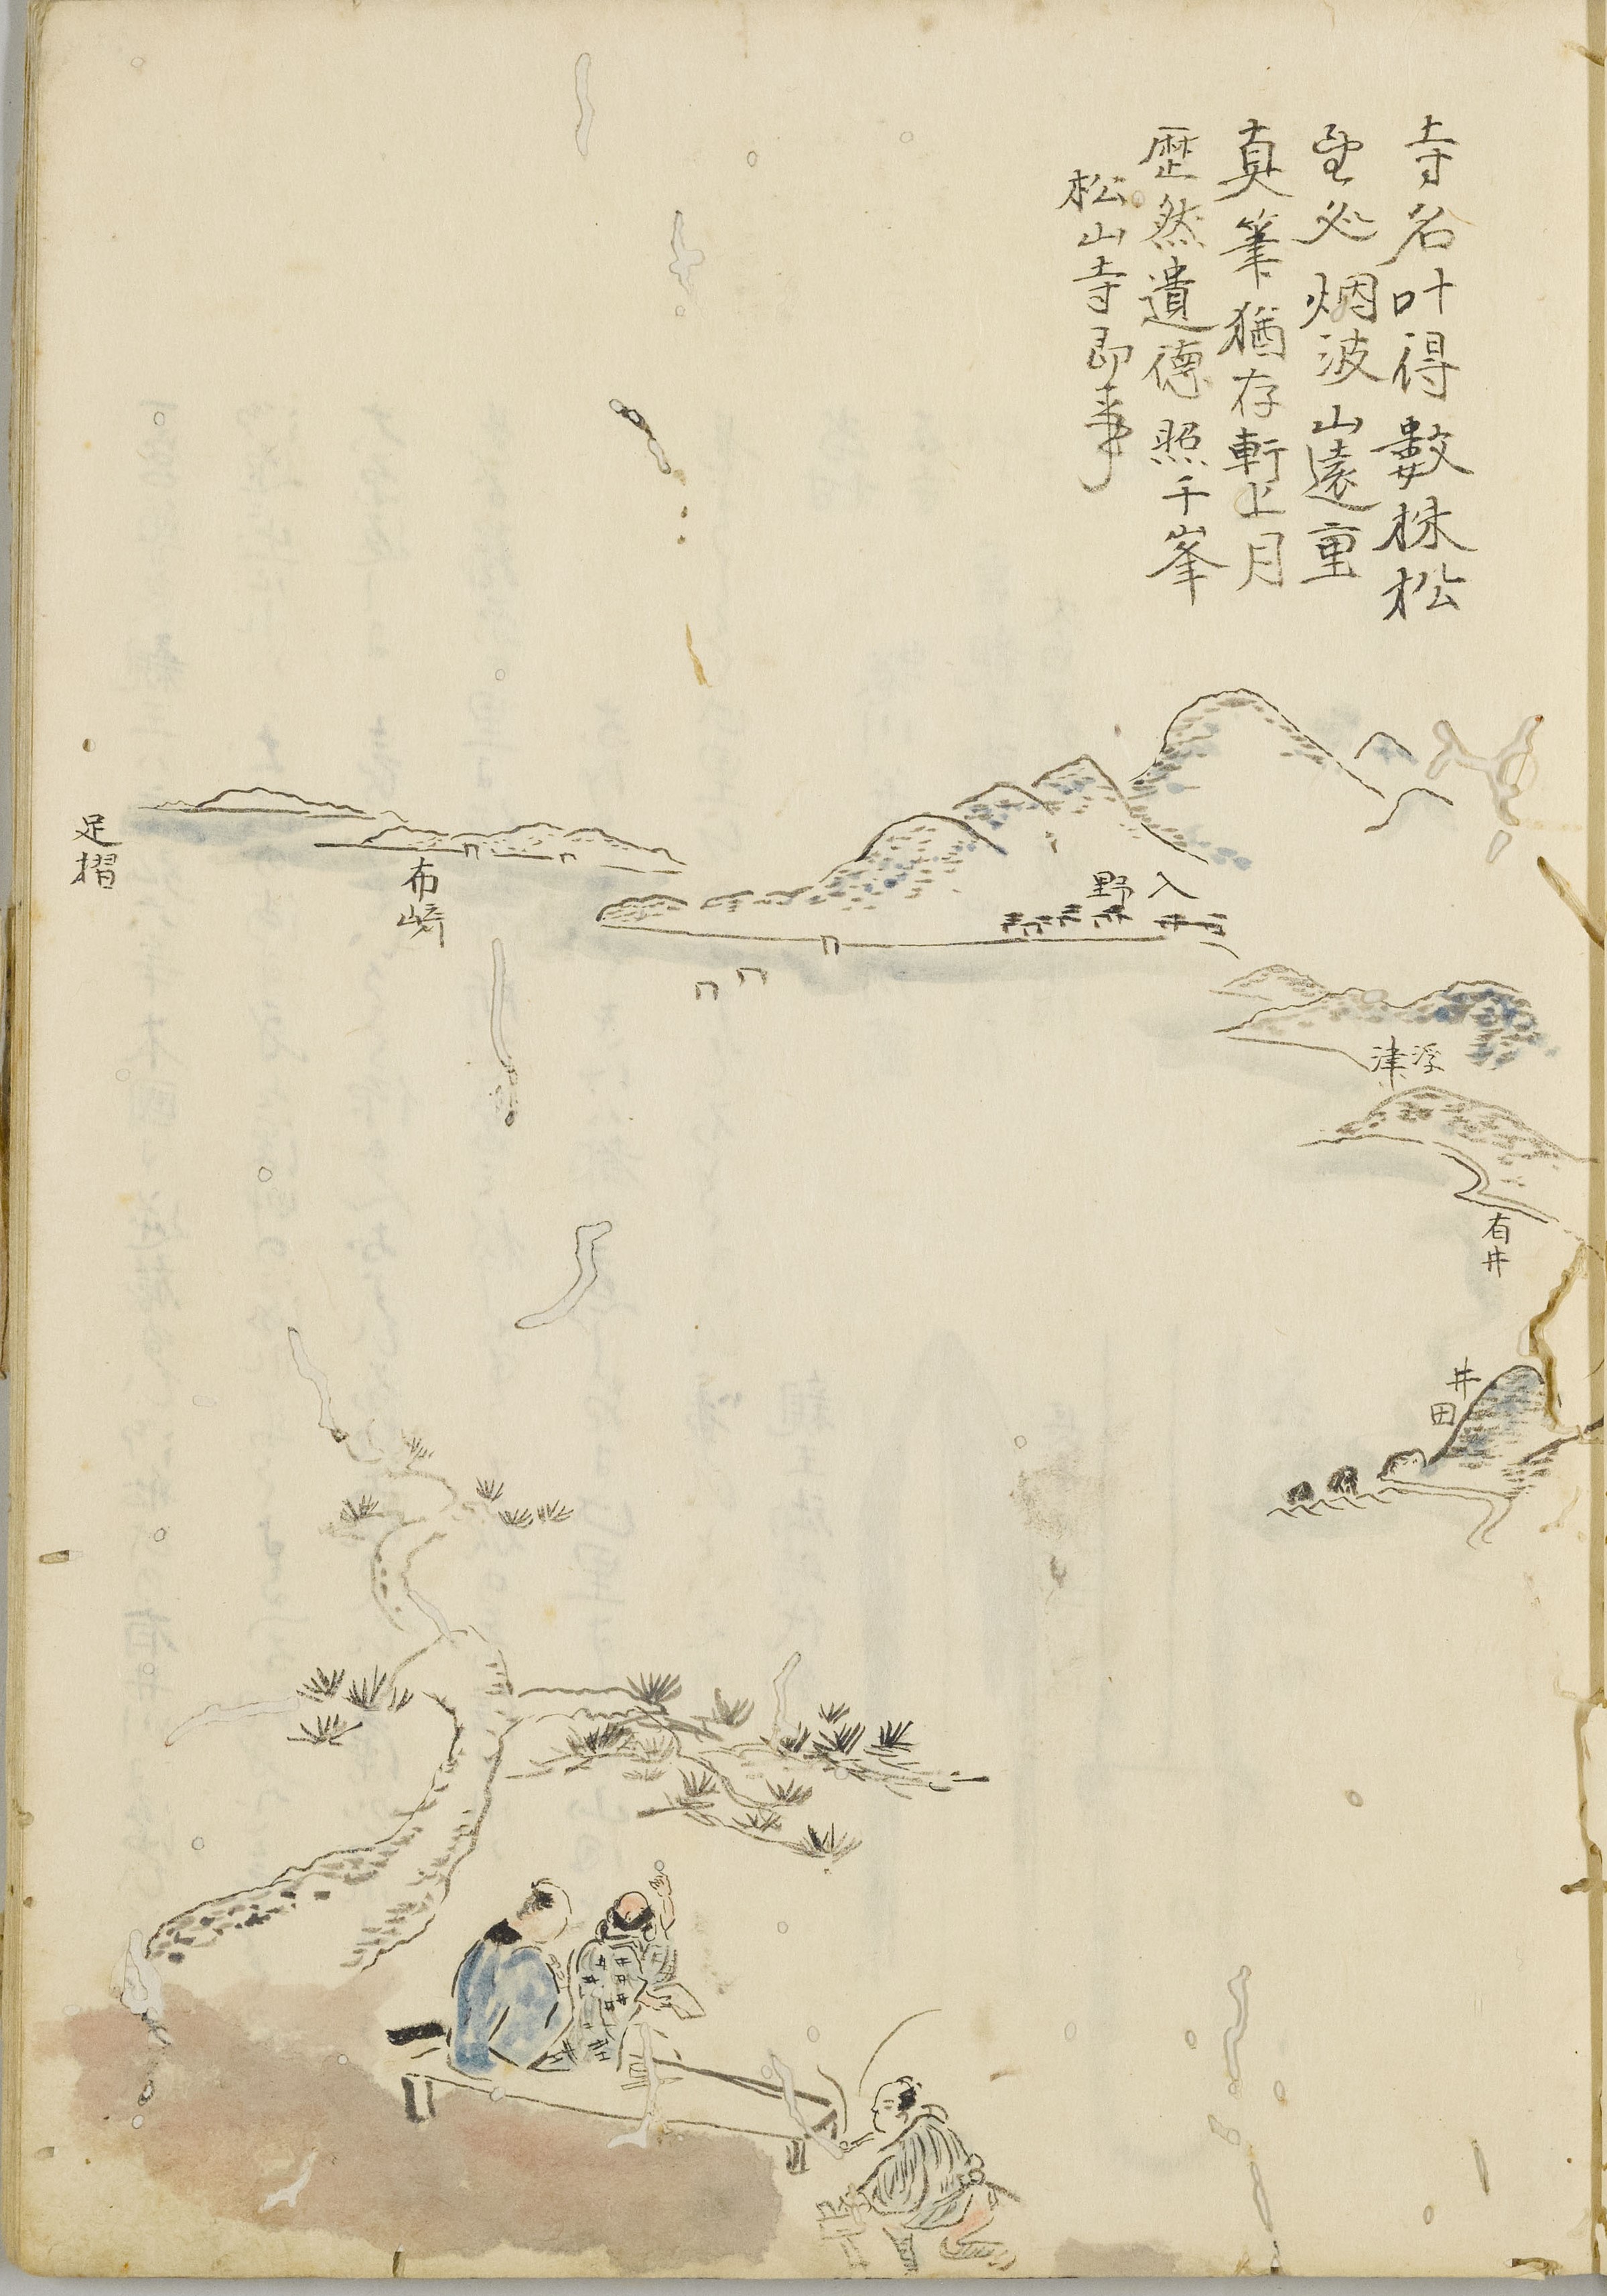 寺名叶得數株松
望処烟波山遠重
真筆猶存軒上月
歴然遺德照千峯
松山寺即事
入野
浮津
有井
井田
布﨑
足摺